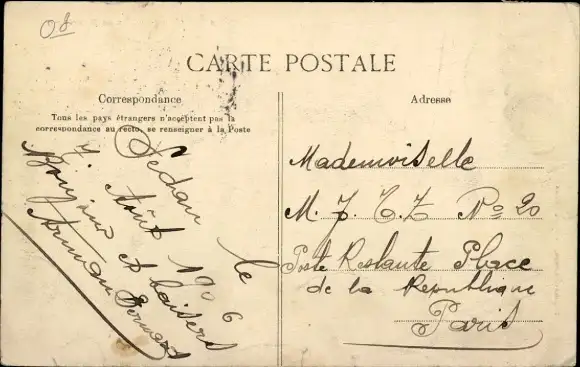 08
CARTE POSTALE
Correspondance
Tous les pays étrangers n'acceptent pas la
correspondance au recto, se renseigner à la Poste
Sedan le
7 Août 1906
Bonjour et baisers
Armand Bernard
Adresse
Mademoiselle
M. J. T. Z No 20
Poste Restante Place
de la République
Paris